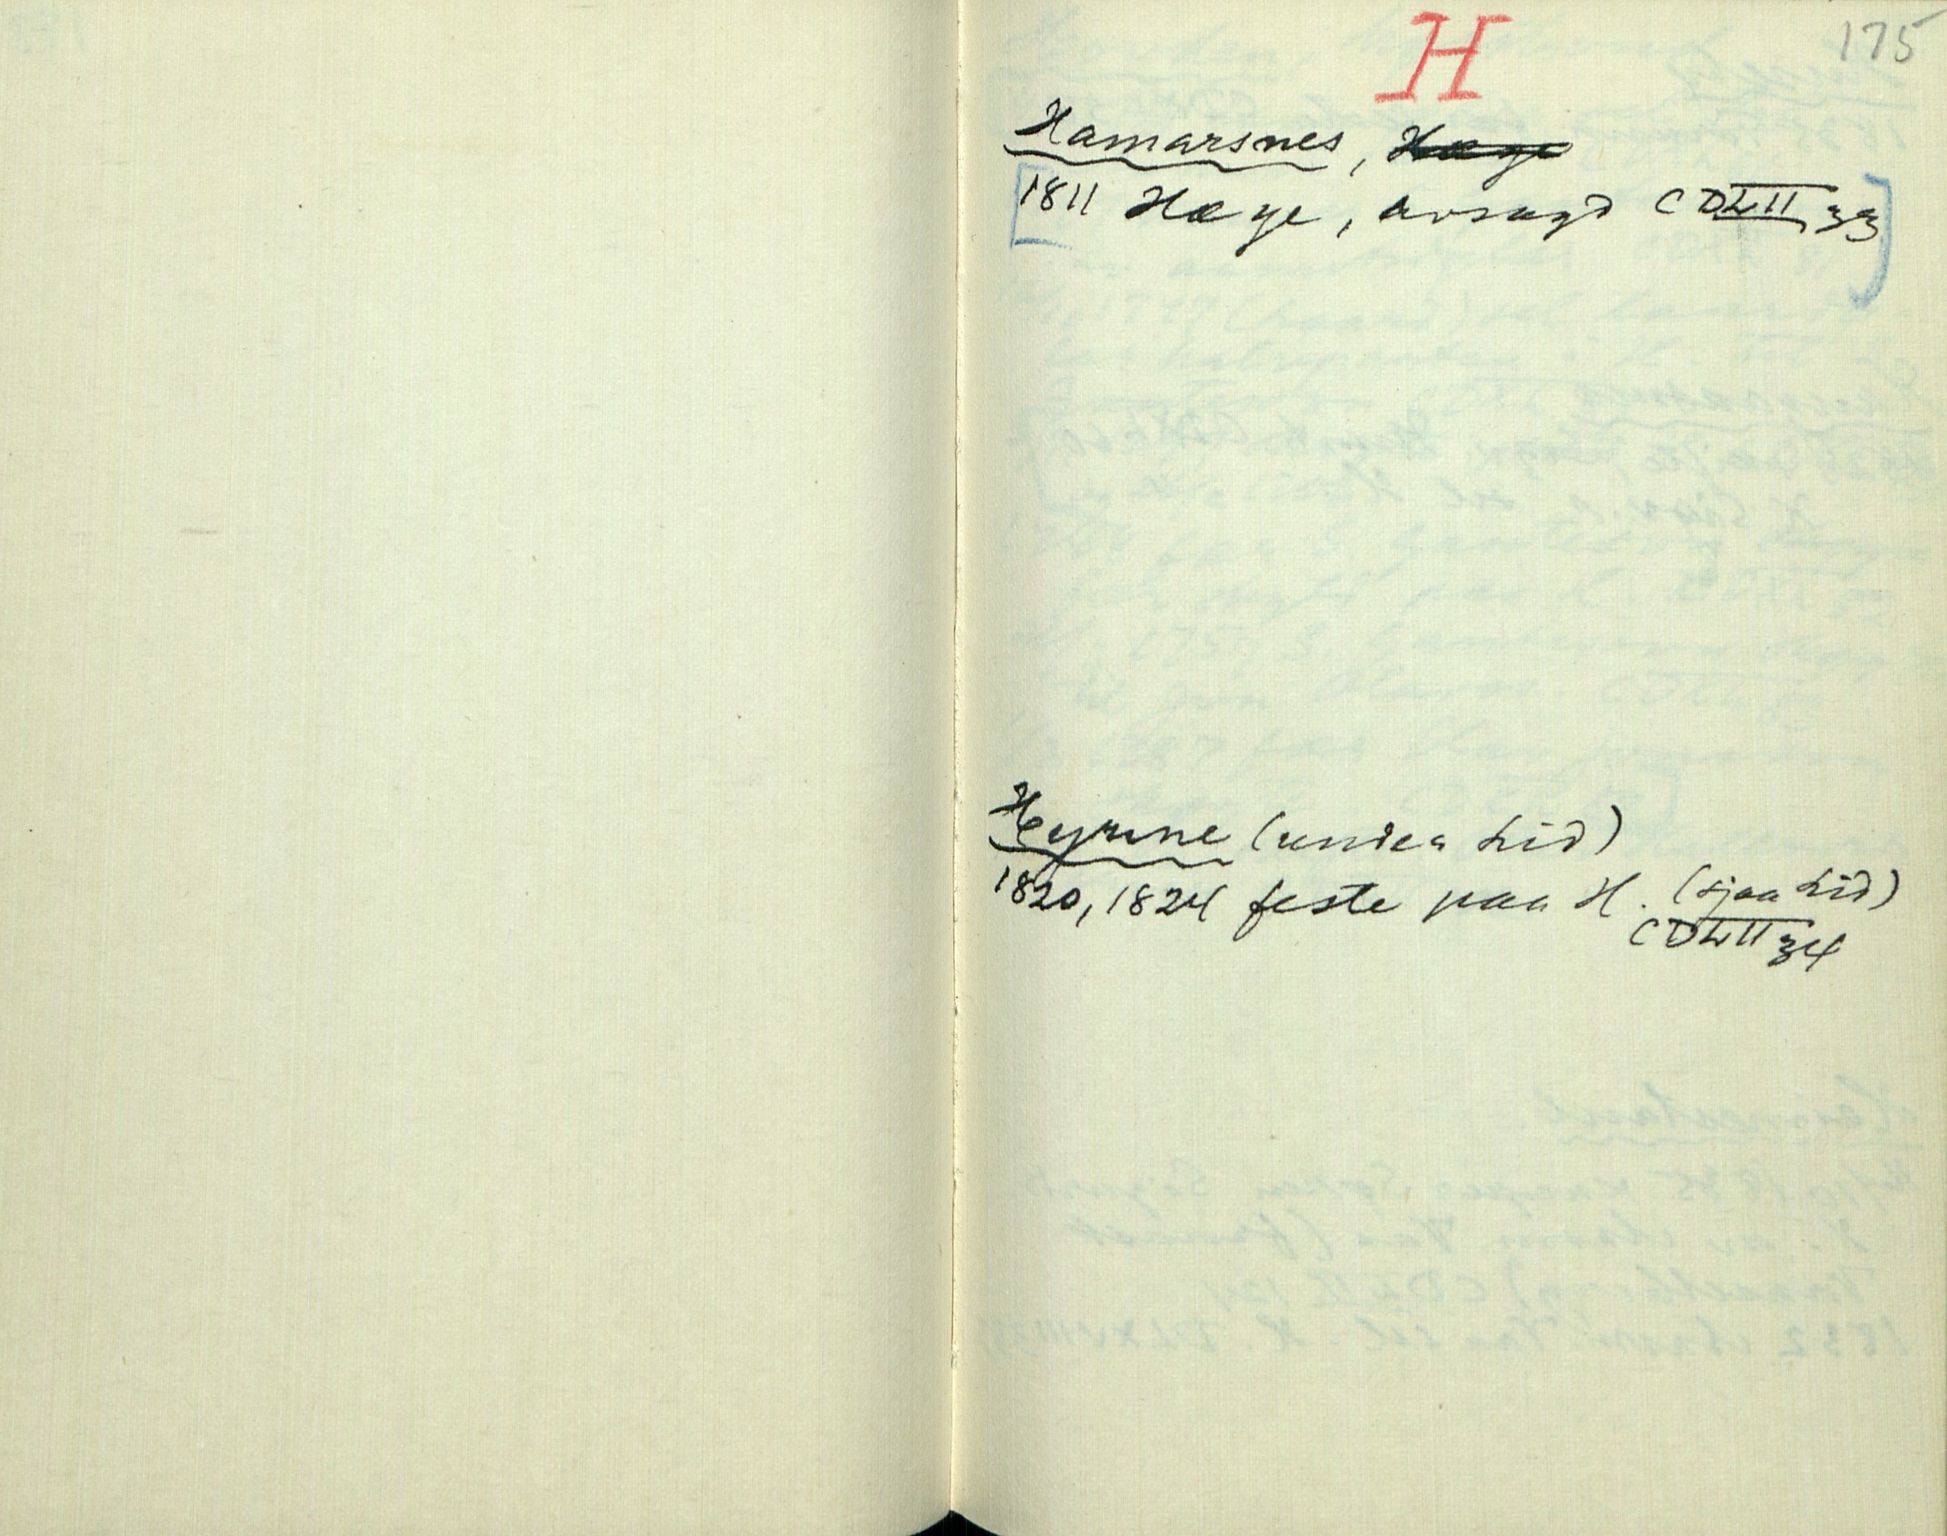 175
H
Hamarsnes, Hæge
1811 Hæge, avsagd CDLII 33
Heyrne (under Lid)
1820, 1824 feste paa H. (sjaa Lid)
CDLII 34